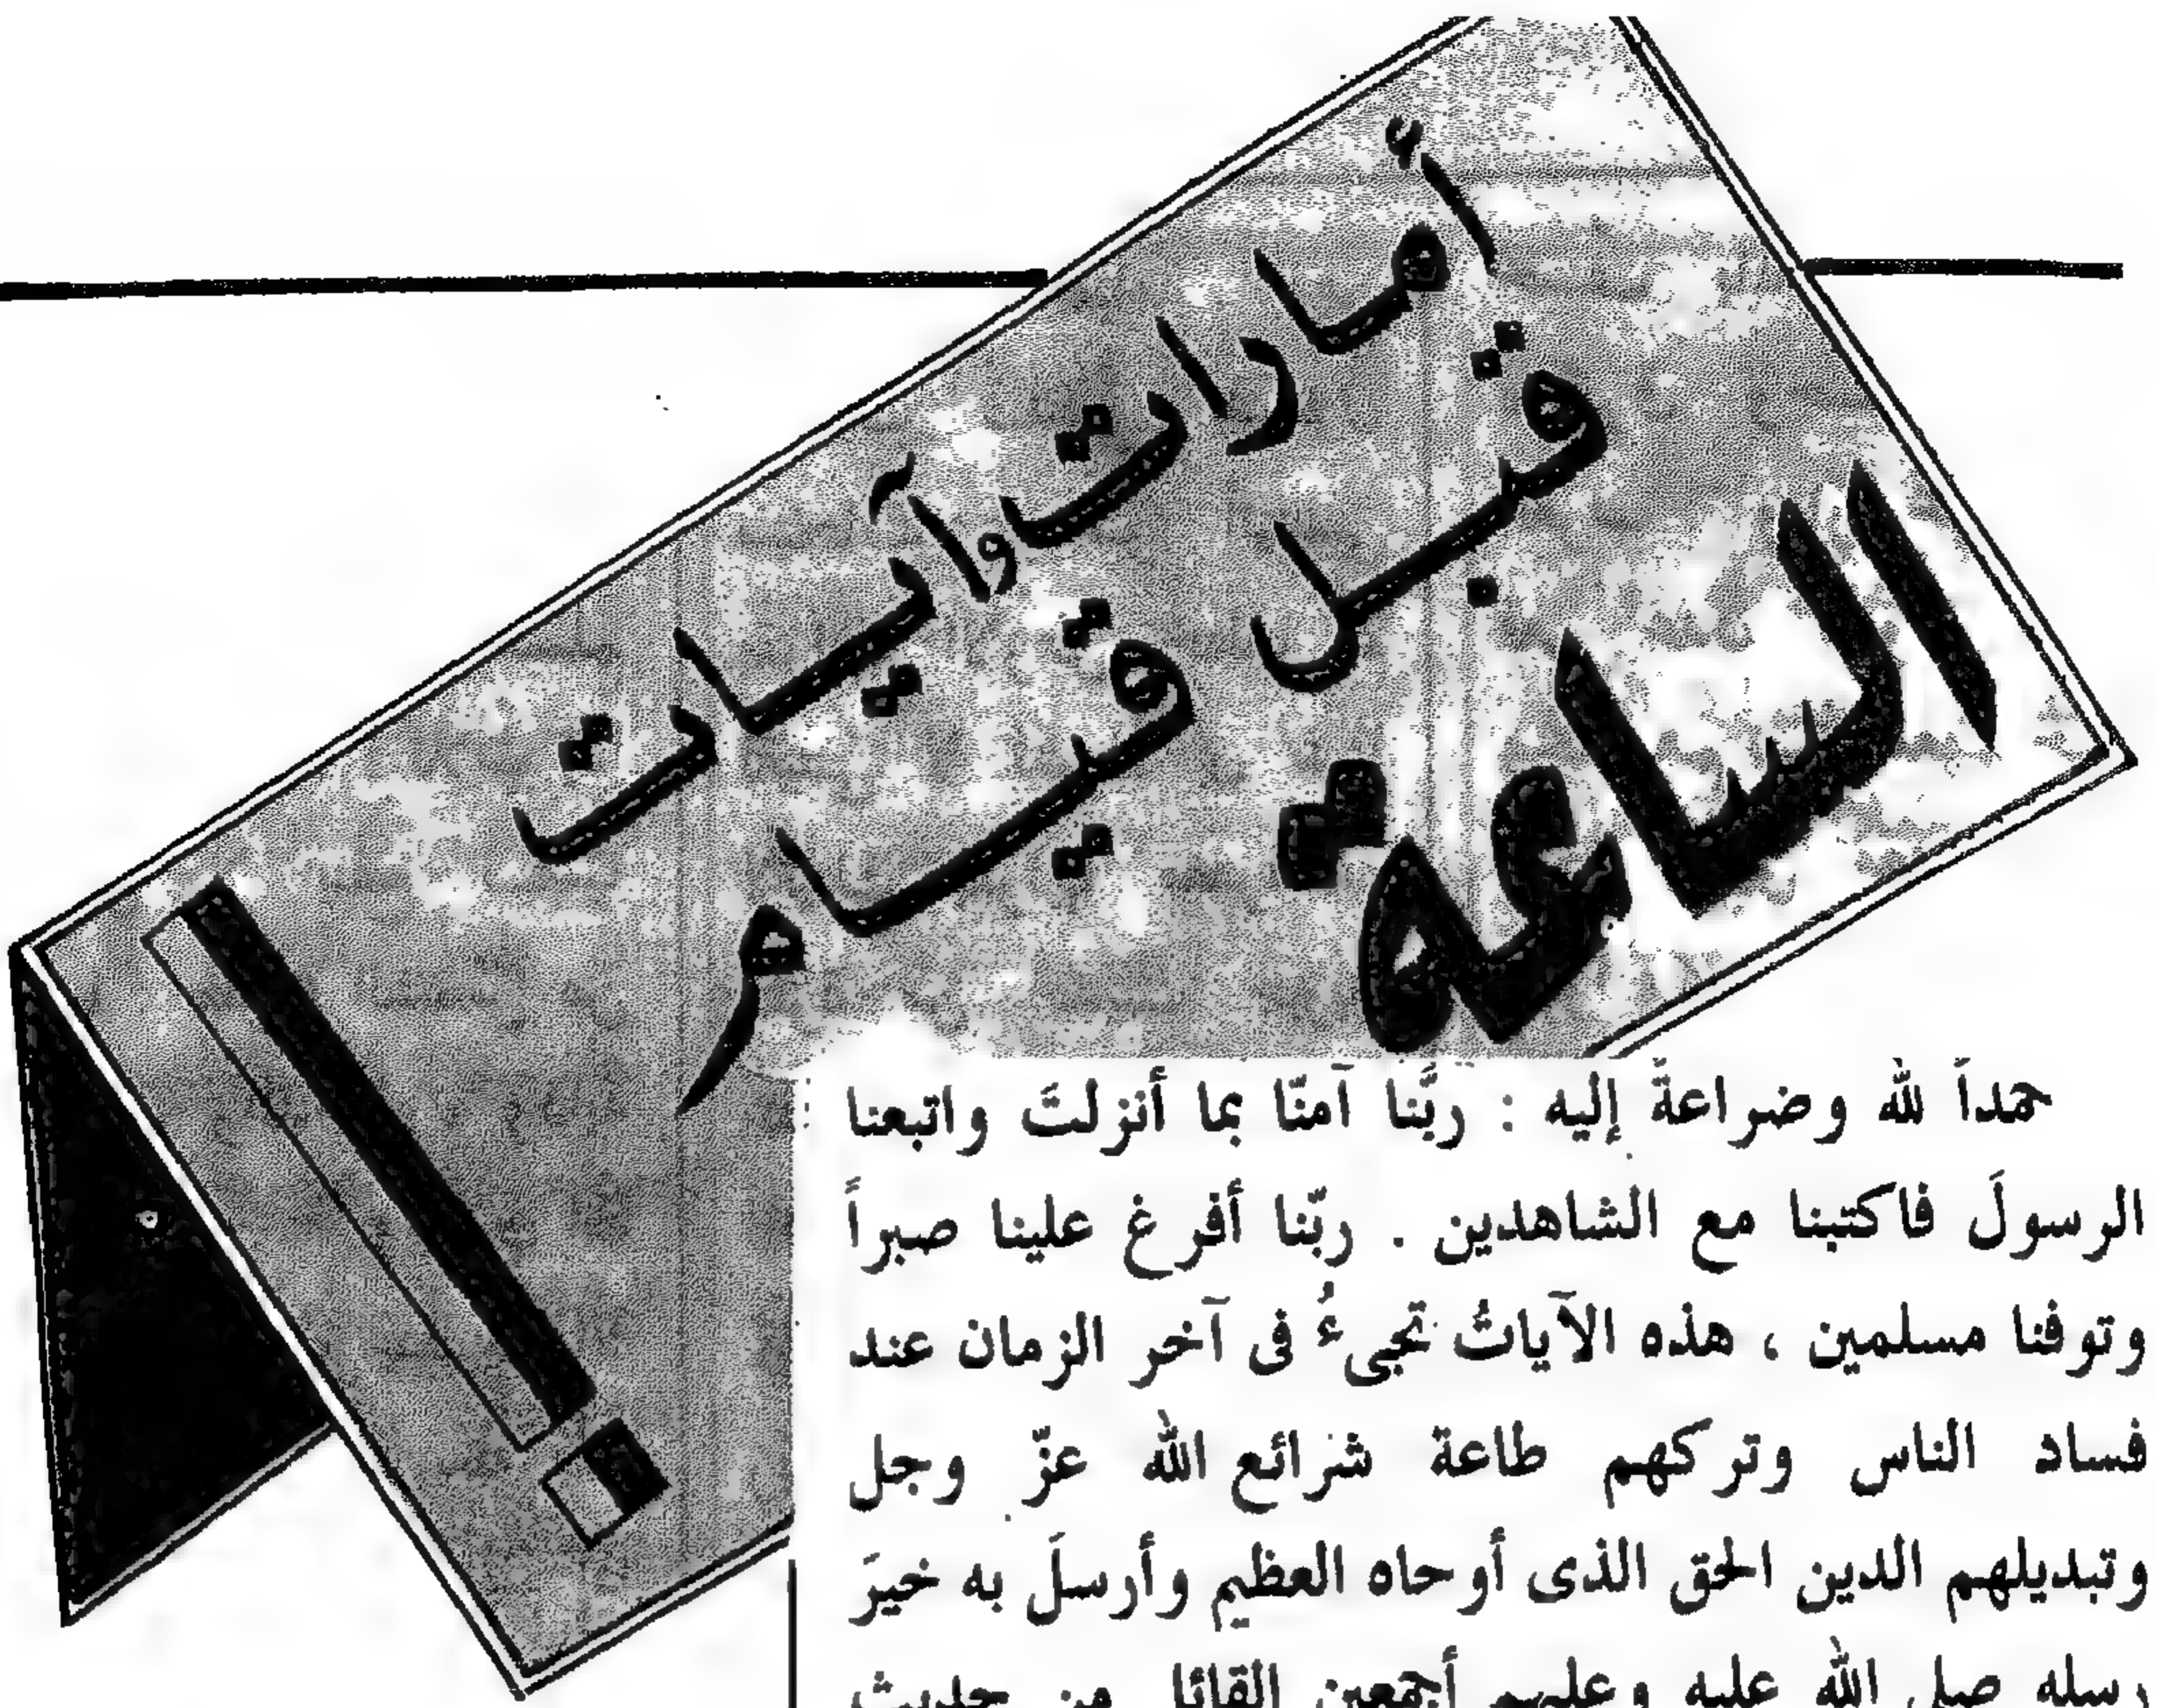 أمارات وآيات
قبل قيام
الساعة
!
حمداً لله وضراعةً إليه : ربَّنا آمنّا بما أنزلتَ واتبعنا
الرسولَ فاكتبنا مع الشاهدين . ربّنا أفرغ علينا صبراً
وتوفنا مسلمين ، هذه الآياتُ تجىءُ فى آخر الزمان عند
فساد الناس وتركهم طاعة شرائع الله عزّ وجل
وتبديلهم الدين الحق الذى أوحاه العظيم وأرسلَ به خيرَ
رسله صلى الله عليه وعليهم أجمعين القائل من حديث